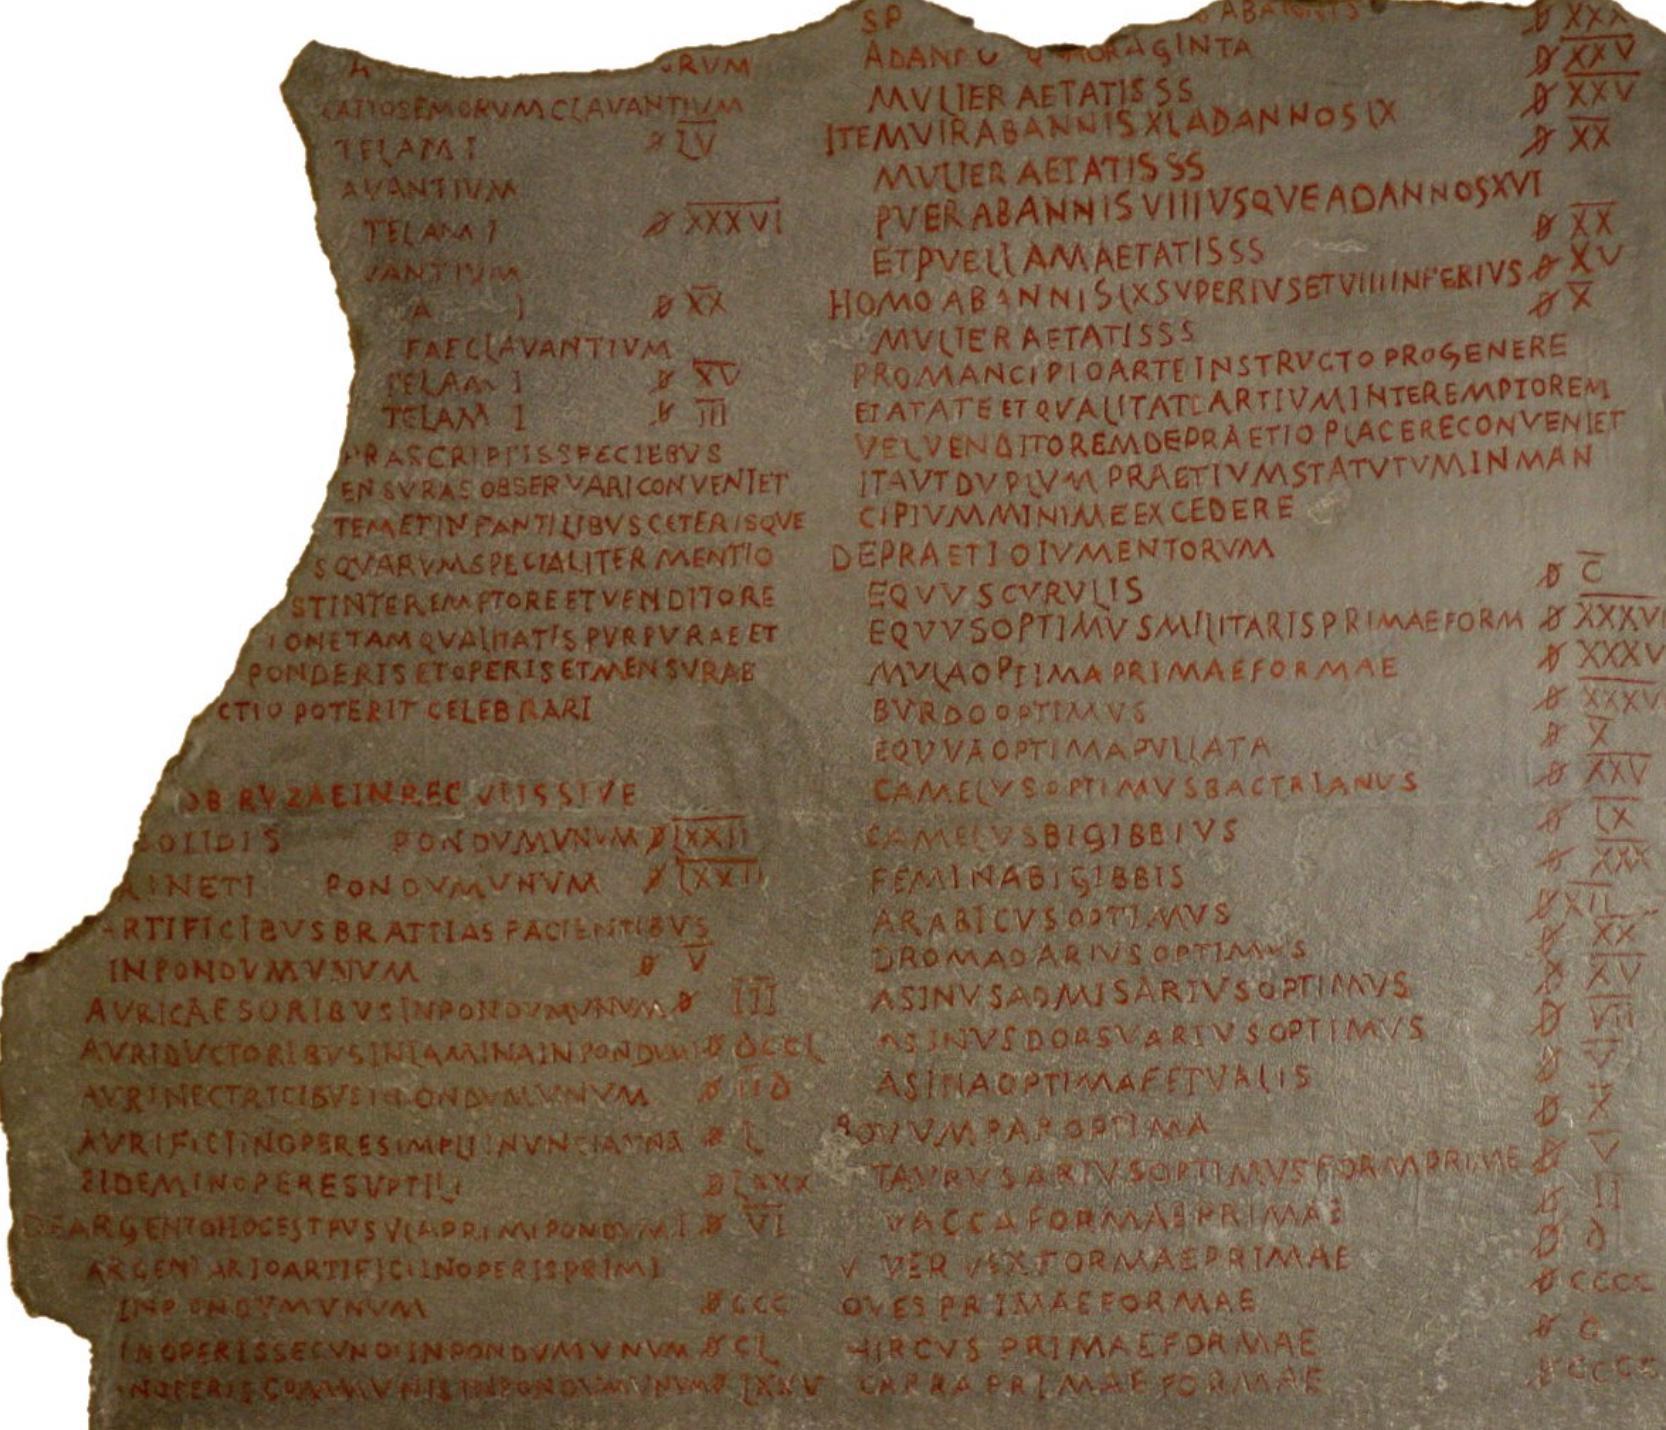 RVM
CATIOSEMORVMCLAVANTIVM
TELAM I 𐆖 LV
AVANTIVM
TELAM I 𐆖 XXXVI
VANTIVM
A I 𐆖 XX
FAECLAVANTIVM
TELAM I 𐆖 XV
TELAM I 𐆖 III
PRASCRIPTISSPECIEBVS
ENSVRASOBSERVARICONVENIET
TEMETINFANTILIBVSCETERISQVE
SQVARVMSPECIALITERMENTIO
STINTEREMPTOREETVENDITORE
IONETAMQVALITATISPVRPVRAEET
PONDERISETOPERISETMENSVRAB
CTIOPOTERITCELEBRARI
OBRYZAEINREGVLISSIVE
SOLIDIS PONDVMVNVM 𐆖 LXXII
RINETI PONDVMVNVM 𐆖 LXXII
ARTIFICIBVSBRATTIASFACIENTIBVS
INPONDVMVNVM 𐆖 V
AVRICAESORIBVSINPONDVMVNVM 𐆖 III
AVRIDVCTORIBVSINLAMINAINPONDVMI 𐆖 DCCL
AVRINECTRICIBVSINPONDVMVNVM 𐆖 IID
AVRIFICIINOPERESIMPLIINVNCIAVNA 𐆖 L
EIDEMINOPERESVPTILI 𐆖 LXXX
DEARGENTOHOCESTPVSVLAPRIMIPONDVMI 𐆖 VI
ARGENTARIOARTIFICIINOPERISPRIMI
INPONDVMVNVM 𐆖 CCC
INOPERISSECVNDIINPONDVMVNVM 𐆖 CL
INOPERISCOMMVNISINPONDVMVNVM 𐆖 LXXV
SP 𐆖 XXX
QVADRAGINTA 𐆖 XXV
MVLIERAETATISSS 𐆖 XXV
ITEMVIRABANNISXLADANNOSLX 𐆖 XX
MVLIERAETATISSS
PVERABANNISVIIIVSQVEADANNOSXVI 𐆖 XX
ETPVELLAMAETATISSS 𐆖 XV
HOMOABANNISLXSVPERIVSETVIIIINFERIVS 𐆖 X
MVLIERAETATISSS
PROMANCIPIOARTEINSTRVCTOPROGENERE
ETATATEETQVALITATEARTIVMINTEREMPTOREM
VELVENDITOREMDEPRAETIOPLACERECONVENIET
ITAVTDVPLVMPRAETIVMSTATVTVMINMAN
CIPIVMMINIMEEXCEDERE
DEPRAETIOIVMENTORVM
EQVVSCVRVLIS 𐆖 C
EQVVSOPTIMVSMILITARISPRIMAEFORM 𐆖 XXXVI
MVLAOPTIMAPRIMAEFORMAE 𐆖 XXXV
BVRDOOPTIMVS 𐆖 XXXVI
EQVVAOPTIMAPVLLATA 𐆖 X
CAMELVSOPTIMVSBACTRIANVS 𐆖 XXV
CAMELVSBIGIBBIVS 𐆖 LX
FEMINABIGIBBIS 𐆖 XXX
ARABICVSOPTIMVS 𐆖 XII
DROMADARIVSOPTIMVS 𐆖 XX
ASINVSADMISARIVSOPTIMVS 𐆖 XV
ASINVSDORSVARIVSOPTIMVS 𐆖 VII
ASINAOPTIMAFETVALIS 𐆖 V
BOVVMPAROPTIMA 𐆖 X
TAVRVSARIVSOPTIMVSFORMPRIME 𐆖 V
VACCAFORMAEPRIMAE 𐆖 II
VERVEXFORMAEPRIMAE 𐆖 D
OVESPRIMAEFORMAE 𐆖 CCCC
HIRCVSPRIMAEFORMAE 𐆖 D
CAPRAPRIMAEFORMAE 𐆖 CCCC